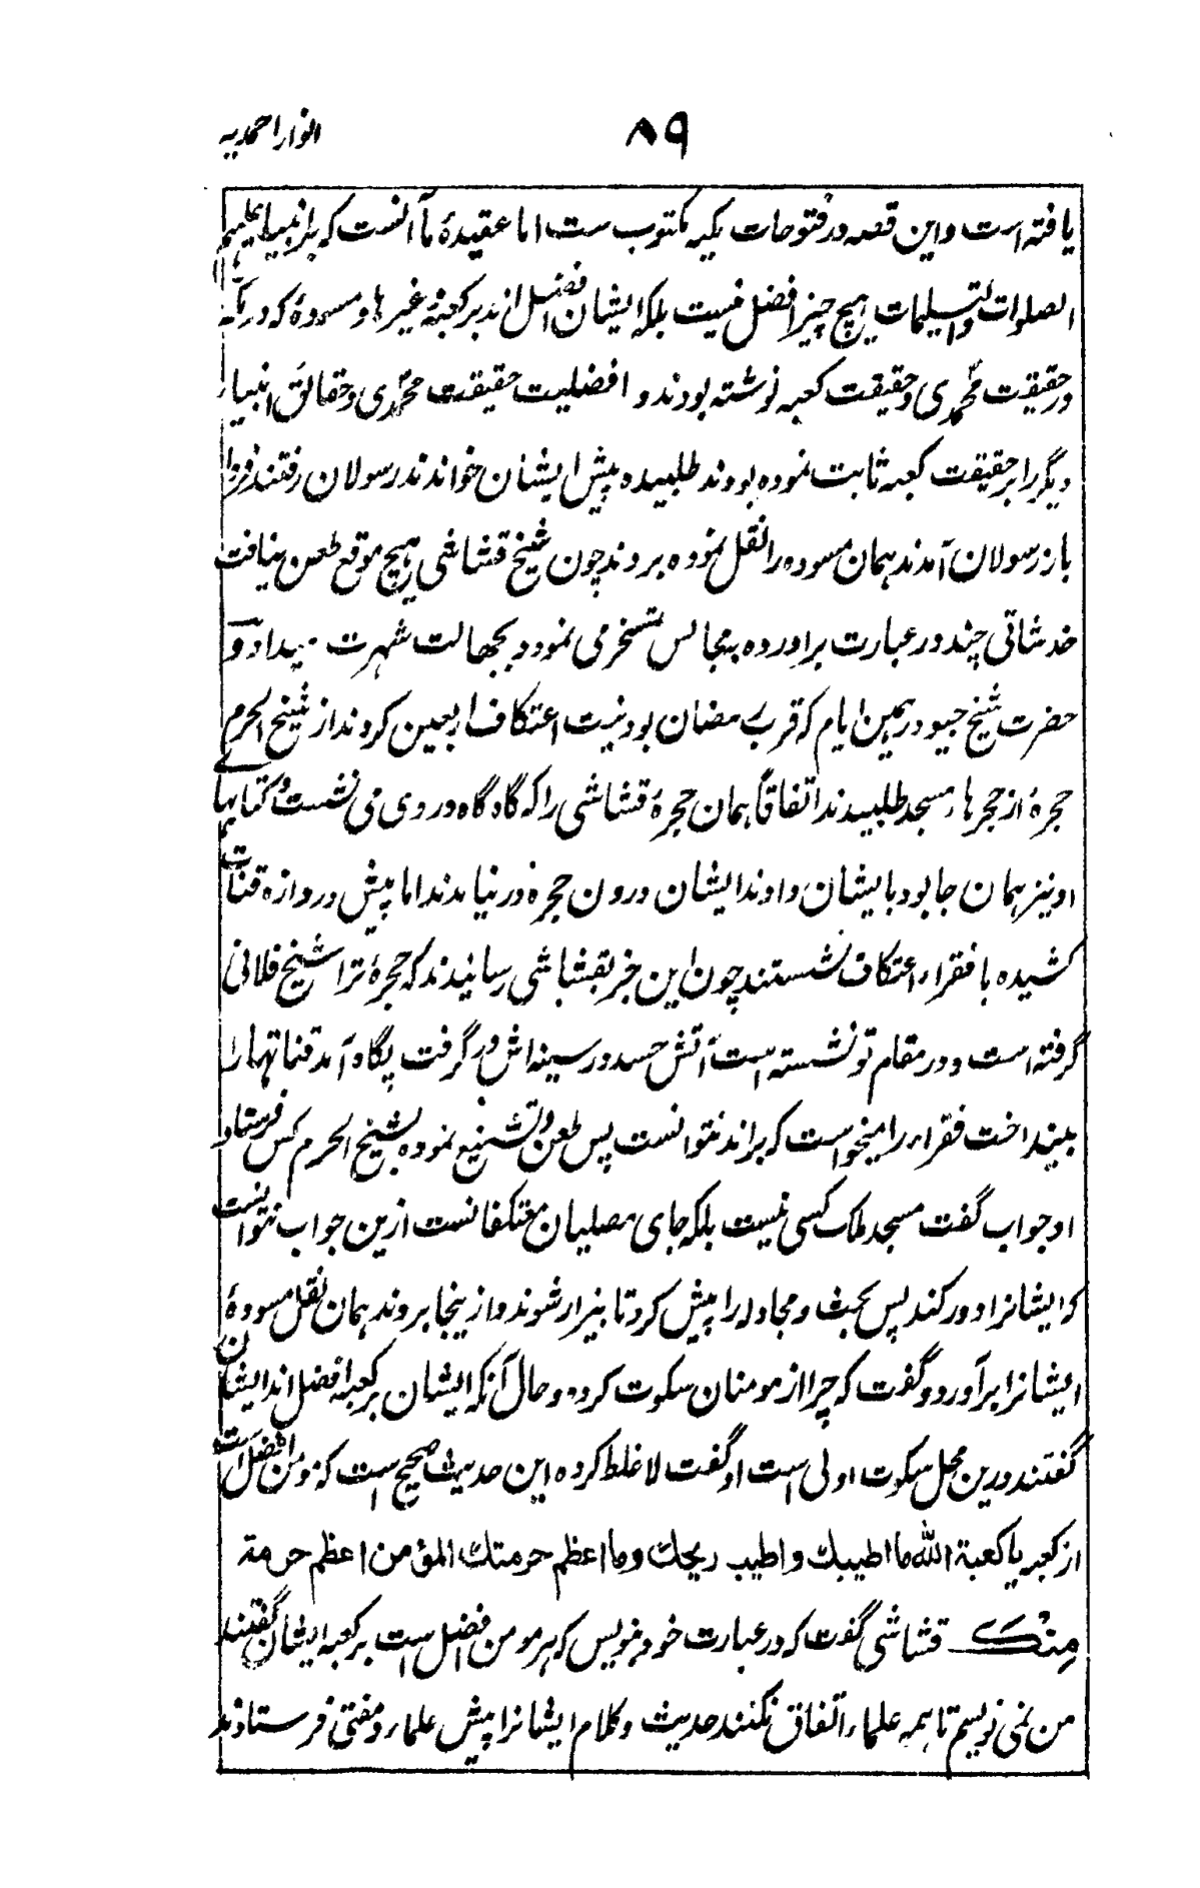 ۸۹ انوار احمدیہ
یافته است و این قصه در فتوحات مکیه مکتوب ست اما عقیدهٔ ما آنست که بر انبیا علیهم
الصلوات والتسلیمات هیچ چیز افضل نیست بلکه ایشان افضل اند بر کعبه و غیرها و مسودهٔ که در مکه
در حقیقت محمدی و حقیقت کعبه نوشته بودند و افضلیت حقیقت محمدی و حقائق انبیاء
دیگر را بر حقیقت کعبه ثابت نموده بودند طلبیده پیش ایشان خواندند رسولان رفتند روز
باز رسولان آمدند همان مسوده را نقل نموده بردند چون شیخ قشاشی هیچ موقع طعن نیافت
خدشاتی چند در عبارت برآورده بمجالس تمسخر می نمود و بجهالت شهرت میداد و
حضرت شیخ جیو در همین ایام که قریب رمضان بود نیت اعتکاف اربعین کردند از شیخ الحرم
حجرهٔ از حجرهاء مسجد طلبیدند اتفاقاً همان حجرهٔ قشاشی را که گاه گاه در وی می نشست و کتابهای
او نیز همان جا بود بایشان دادند ایشان درون حجره در نیامدند اما پیش دروازه قنات
کشیده با فقراء اعتکاف نشستند چون این خبر بقشاشی رسانیدند که حجرهٔ ترا شیخ فلانی
گرفته است و در مقام تو نشسته است آتش حسد در سینه اش در گرفت پگاه آمد قناتها را
بینداخت فقراء را میخواست که براند نتوانست پس طعن و تشنیع نموده بشیخ الحرم کس فرستاد
او جواب گفت مسجد ملک کسی نیست بلکه جای مصلیان معتکفانست ازین جواب نتوانست
که ایشانرا دور کند پس بحث و مجادله را پیش کرد تا بیزار شوند و ازینجا بروند همان نقل مسودهٔ
ایشانرا برآورد و گفت که چرا از مومنان سکوت کرده و حال آنکه ایشان بر کعبه افضل اند ایشان
گفتند درین محل سکوت اولی است او گفت لا غلط کرده این حدیث صحیح است که مومن افضل است
از کعبه یا کعبة الله ما اطیبك و اطیب ریحك و ما اعظم حرمتك المؤمن اعظم حرمة
مِنْكَ قشاشی گفت که در عبارت خود بنویس که هر مومن افضل است بر کعبه ایشان گفتند
من نمی نویسم تا همه علماء اتفاق نکنند حدیث و کلام ایشانرا پیش علماء و مفتی فرستادند